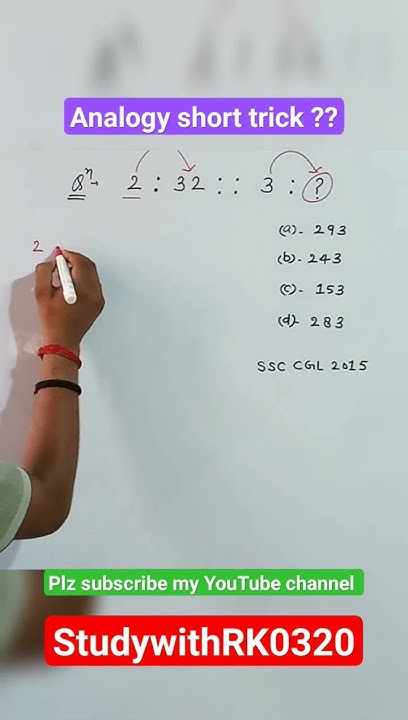 Analogy short trick ??
Qⁿ- 2 : 32 :: 3 : ?
(a)- 293
(b)- 243
2
(c)- 153
(d)- 283
SSC CGL 2015
Plz subscribe my YouTube channel
StudywithRK0320